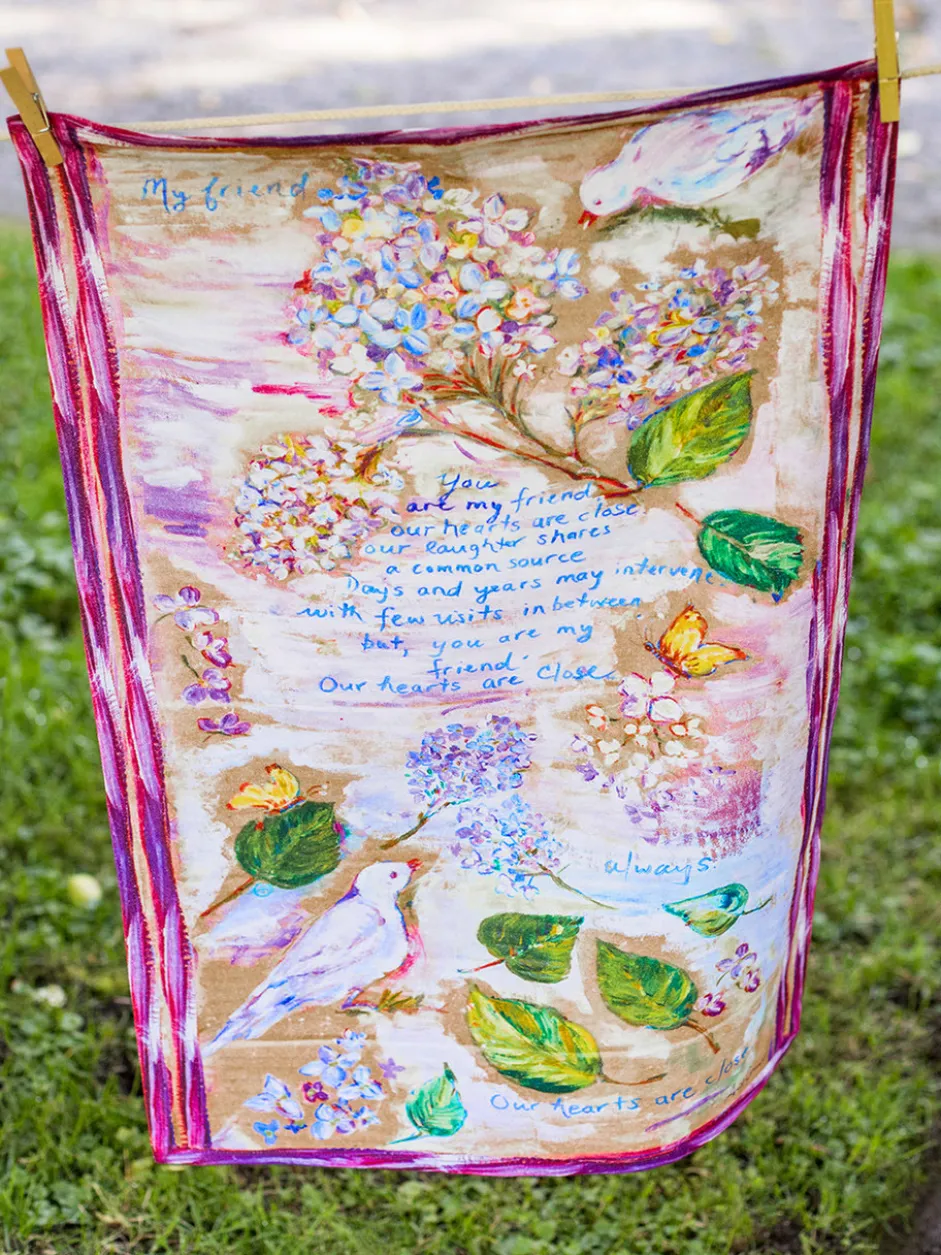 My friend
You
are my friend
our hearts are close
our laughter shares
a common source
Days and years may intervene
with few visits in between
but, you are my
friend.
Our hearts are close
always.
Our hearts are close